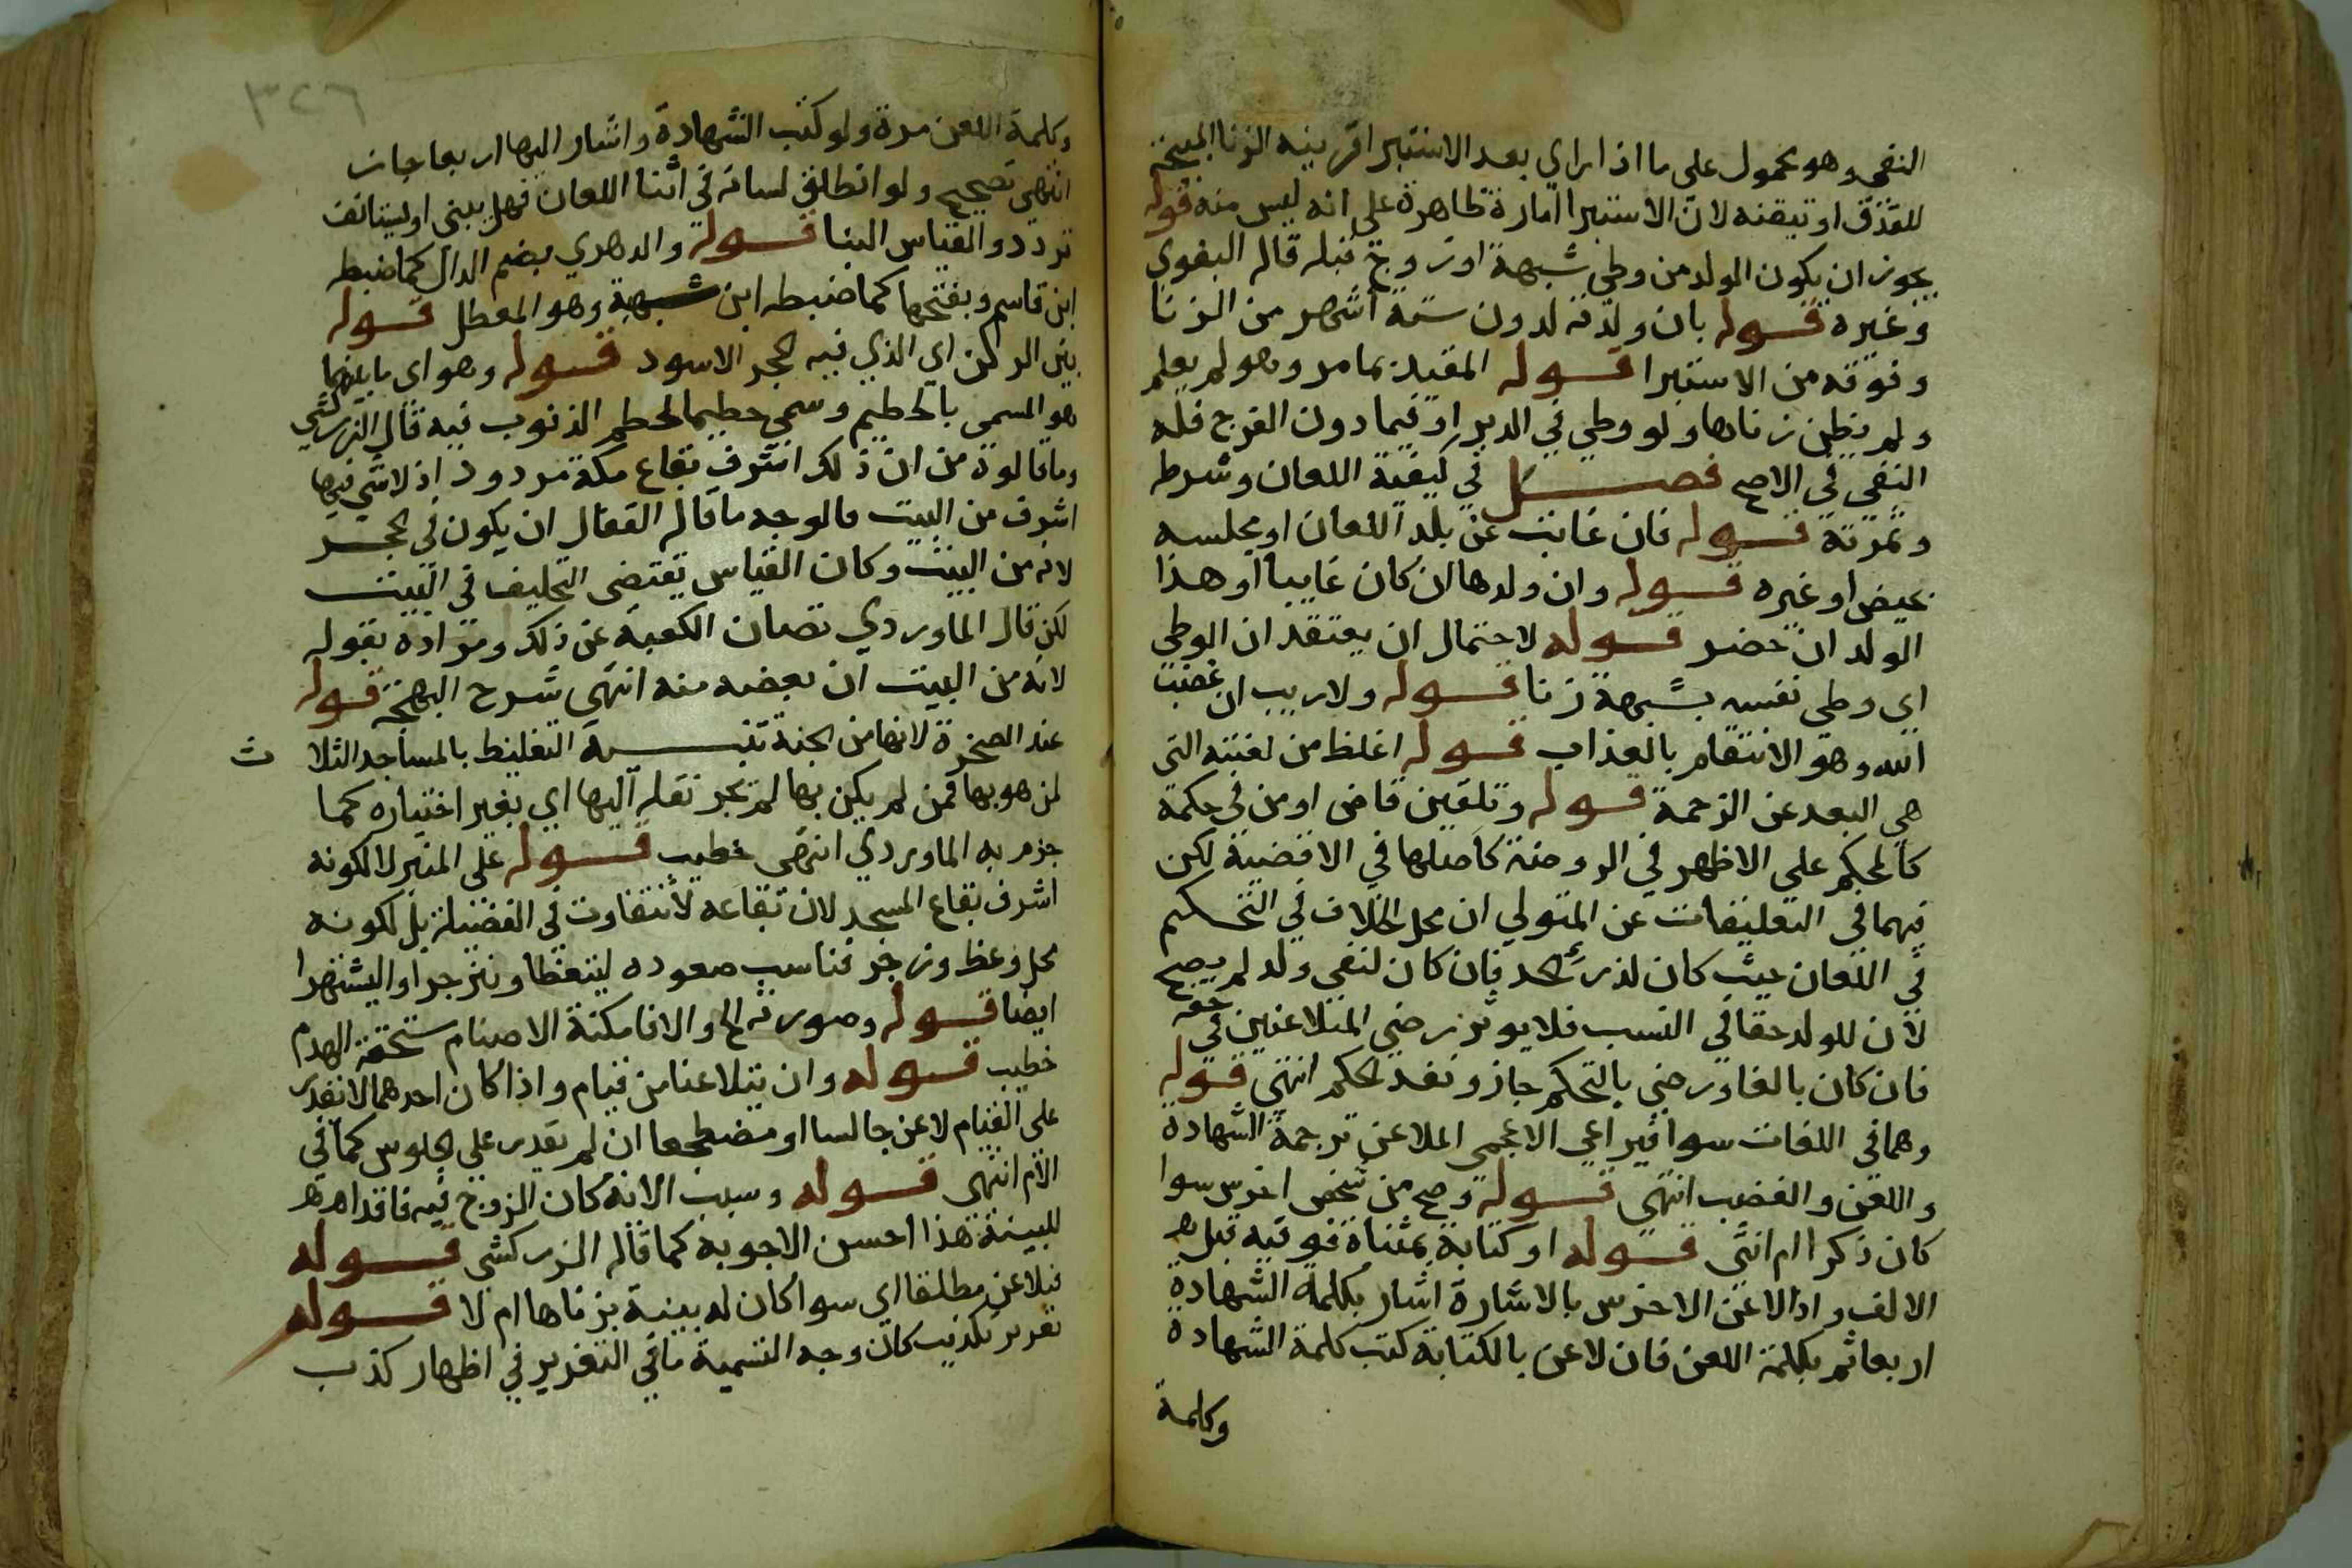 النفي وهو محمول على ما اذا راي بعد الاستبرا قرينة الزنا المبيحة
للقذف او تيقنه لان الاستبرا امارة ظاهرة على انه ليس منه قوله
يجوز ان يكون الولد من وطي شبهة او زوج قبله قاله البغوي
وغيره قوله بان ولدته لدون ستة اشهر من الزنا
وفوقه من الاستبرا قوله المقيد بما مر وهو لم يعلم
ولم يظن زناها ولو وطي في الدبر او فيما دون الفرج فله
النفي في الاصح فصل في كيفية اللعان وشرط
وثمرته قوله فان غابت عن بلد اللعان او مجلسه
بحيض او غيره قوله وان ولدها ان كان غايبا او هذا
الولد ان حضر قوله لاحتمال ان يعتقد ان الوطي
اي وطي نفسه بشبهة زنا قوله ولا ريب ان غضب
الله وهو الانتقام بالعذاب قوله اغلظ من لعنته التي
هي البعد عن الرحمة قوله وتلقين قاض او من في حكمة
كالمحكم على الاظهر في الروضة كاصلها في الاقضية لكن
فيهما في التعليقات عن المتولي ان محل الخلاف في التحكيم
في اللعان حيث كان لدرئ الحد فان كان لنفي ولد لم يصح
لان للولد حقا في النسب فلا يوثر رضي المتلاعنين في حقه
فان كان بالغا ورضي بالتحكم جاز ونفذ الحكم انتهي قوله
وهما في اللغات سوا فيراعي الاعجمي الملاعن ترجمة الشهادة
واللعن والغضب انتهي قوله وصح من شخص اخرس سوا
كان ذكرا ام انثى قوله او كتابة بمثناة فوقية قبلها
الالف واذا لاعن الاخرس بالاشارة اشار بكلمة الشهادة
اربعا ثم بكلمة اللعن فان لاعن بالكتابة كتب كلمة الشهادة
وكلمة
٣٢٦
وكلمة اللعن مرة ولو كتب الشهادة واشار اليها اربعا جاز
انتهي تصحيح ولو انطلق لسانه في اثنا اللعان فهل يبنى او يستانف
تردد والقياس البنا قوله والدهري بضم الدال كما ضبطه
ابن قاسم وبفتحها كما ضبطه ابن شهبة وهو المعطل قوله
بين الركن اي الذي فيه الحجر الاسود قوله وهو اي ما بينهما
هو المسمى بالحطيم وسمي حطيما لحطم الذنوب فيه قال الزركشي
وما قالوه من ان ذلك اشرف بقاع مكة مردود اذ لا شي فيها
اشرف من البيت فالوجه ما قاله القفال ان يكون في الحجر
لانه من البيت وكان القياس يقتضي التحليف في البيت
لكن قال الماوردي تصان الكعبة عن ذلك ومراده بقوله
لانه من البيت ان بعضه منه انتهي شرح البهجة قوله
عند الصخرة لانها من الجنة تنبيه التغليظ بالمساجد الثلا
ث
لمن هو بها فمن لم يكن بها لم يجز نقله اليها اي بغير اختياره كما
جزم به الماوردي انتهى خطيب قوله على المنبر لا لكونه
اشرف بقاع المسجد لان بقاعه لا تتفاوت في الفضيلة بل لكونه
محل وعظ وزجر فناسب صعوده ليتعظا وينزجرا او ليشتهرا
ايضا قوله وصورته الخ والا فامكنة الاصنام مستحقة الهدم
خطيب قوله وان يتلاعنا من قيام واذا كان احدهما لا نقدر
على القيام لاعن جالسا او مضطجعا ان لم يقدر على الجلوس كما في
الام انتهى قوله وسبب الانه كان الزوج فيه فاقد اهر
للبينة هذا احسن الاجوبة كما قاله الزركشي قوله
فيلاعن مطلقا اي سوا كان له بينة بزناها ام لا قوله
تعزير تكذيب كان وجه التسمية ما في التعزير في اظهار كذب